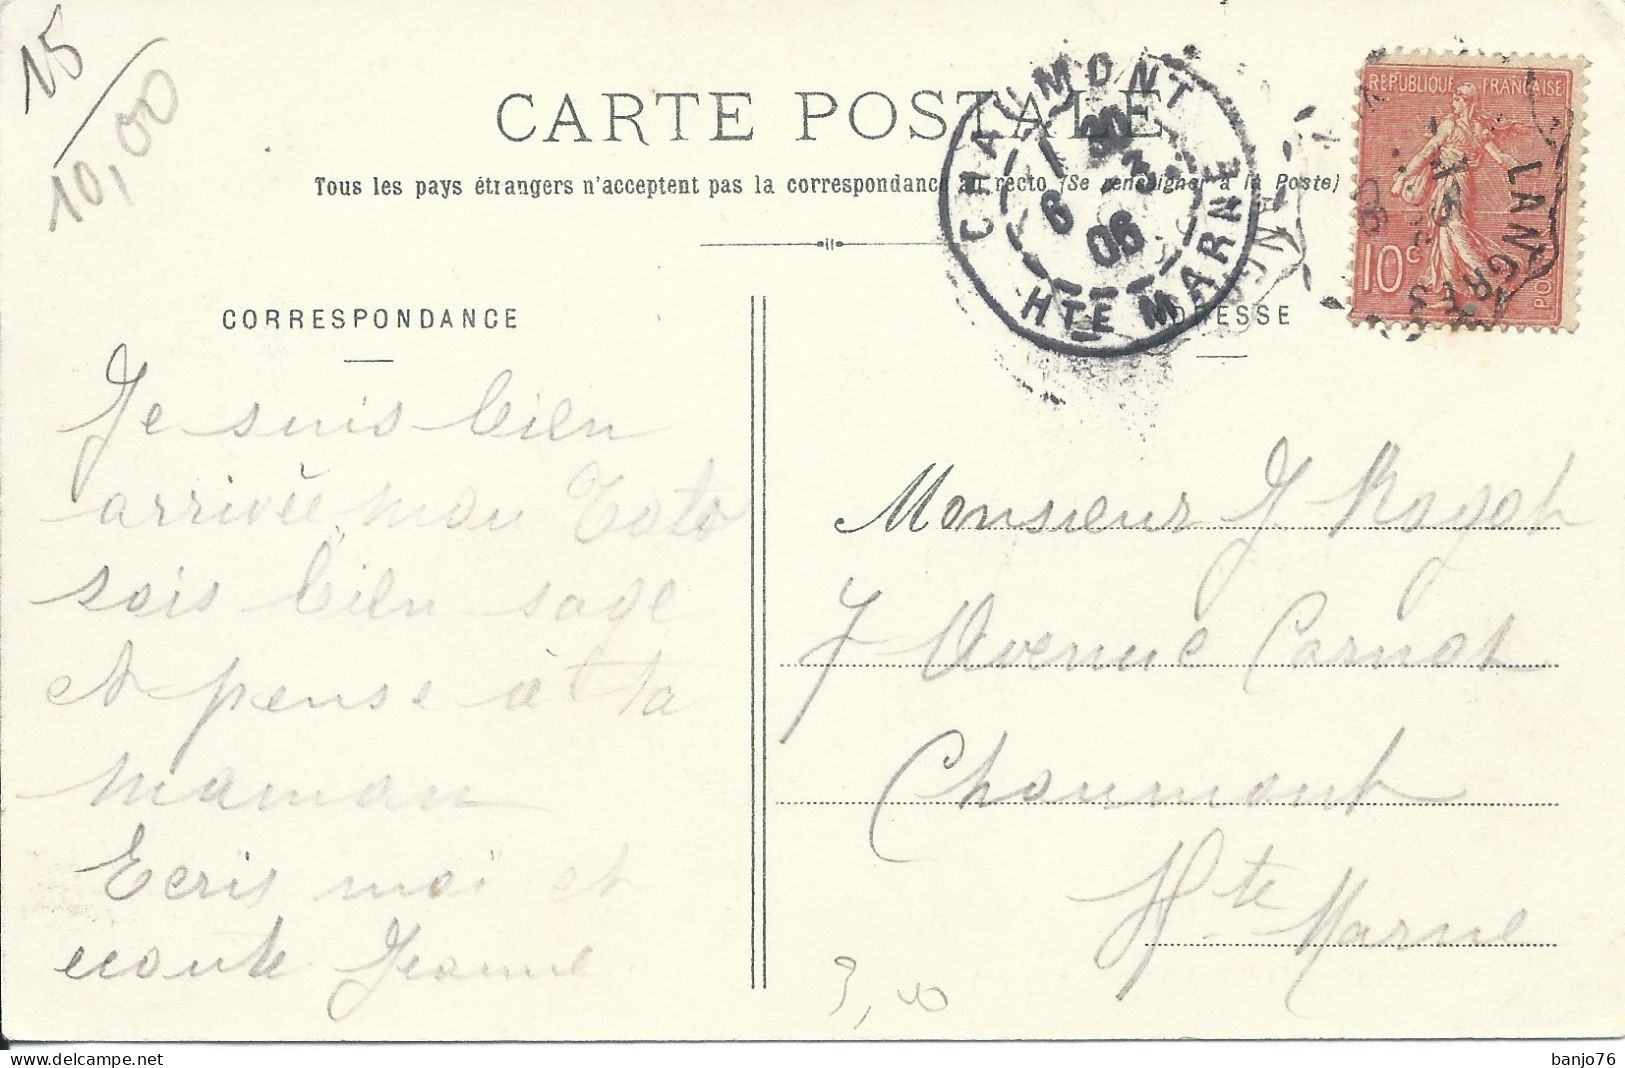 15
10,00
CARTE POSTALE
Tous les pays étrangers n'acceptent pas la correspondance au recto (Se renseigner à la Poste)
CHAUMONT
6 3
06
HTE MARNE
REPUBLIQUE FRANÇAISE
10c
LANGRES
CORRESPONDANCE
ADRESSE
Je suis bien
arrivée mon Toto
sois bien sage
et pense à ta
maman
Ecris moi et
ecoute Jeanne
Monsieur J Ragot
7 Avenue Carnot
Chaumont
Hte Marne
3,00
banjo76